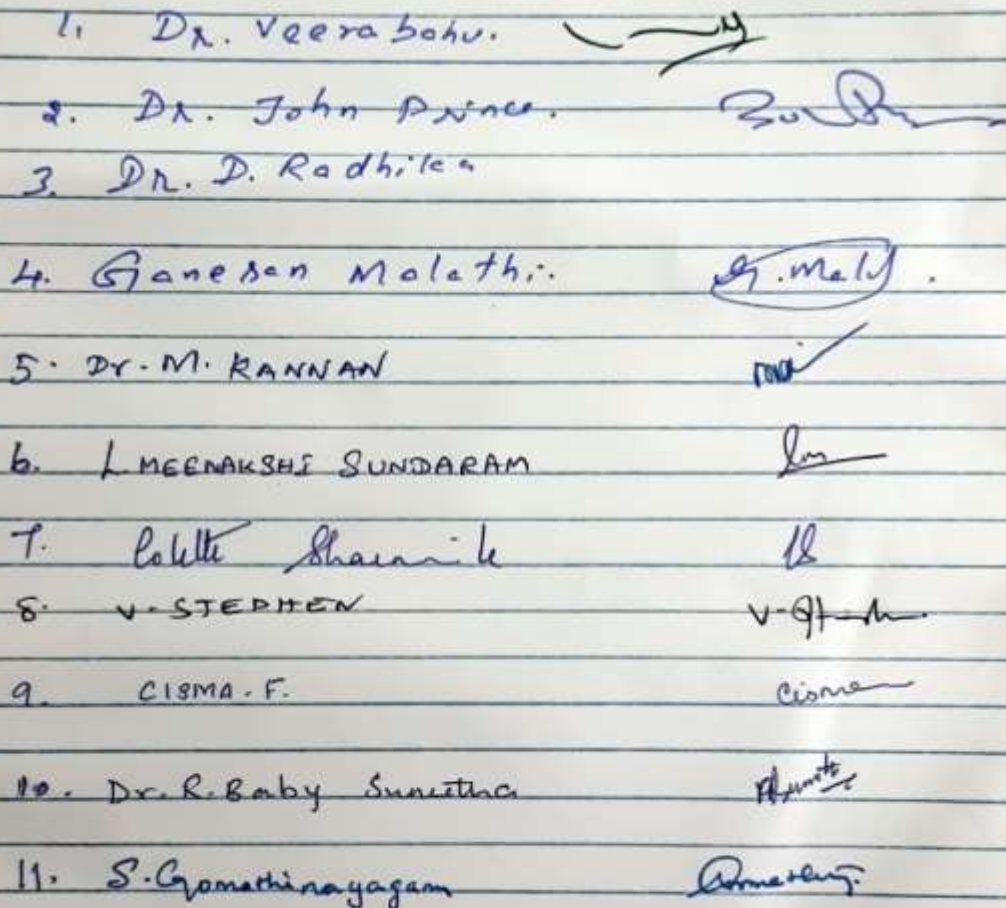 1. Dr. Veerabahu.
2. Dr. John Prince.
3. Dr. D. Radhika
4. Ganesan Malathi. G. Mal
5. Dr. M. KANNAN
6. L MEENAKSHI SUNDARAM
7. Colette
8. V. STEPHEN
9. CISMA. F. Cisma
10. Dr. R. Baby Sunitha
11. S. Gomathinayagam